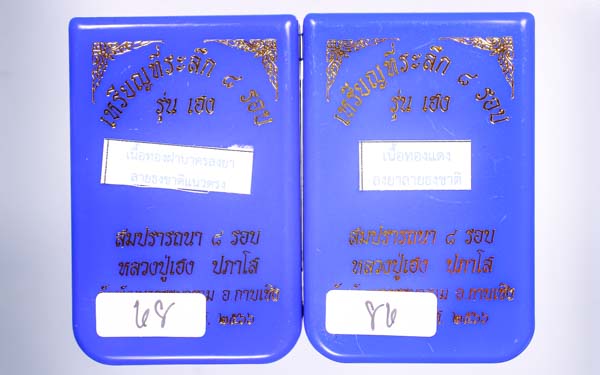 เหรียญที่ระลึก ๘ รอบ
รุ่น เฮง
เนื้อทองฝาบาตรลงยา
ลายธงชาติแนวตรง
สมปรารถนา ๘ รอบ
หลวงปู่เฮง ปภาโส
อ.กาบเชิง
๒๕๖๖
เหรียญที่ระลึก ๘ รอบ
รุ่น เฮง
เนื้อทองแดง
ลงยาลายธงชาติ
สมปรารถนา ๘ รอบ
หลวงปู่เฮง ปภาโส
อ.กาบเชิง
๒๕๖๖